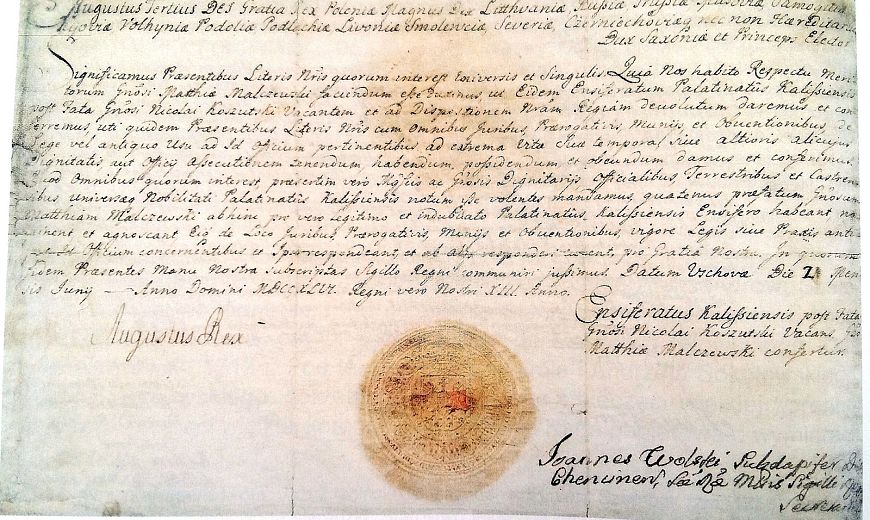 Augustus Tertius DEI Gratia Rex Poloniæ Magnus Dux Lithvaniæ, Rußiæ, Prußiæ, Masoviæ, Samogitiæ
Kyoviæ Volhyniæ Podoliæ Podlachiæ Livoniæ Smolenciæ Severiæ, Czerniechoviæq nec non Hæreditarius
Dux Saxoniæ et Princeps Elector
Significamus Præsentibus Literis Nris quorum interest Universis et Singulis. Quia Nos habito Respectu Meri
torum Gnosi Matthiæ Malczewski faciendum esse Duximus, ut Eidem Ensiferatum Palatinatus Kalißiensis
post Fata Gnosi Nicolai Koszutski Vacantem et ad Dispositionem Nram Regiam devolutum daremus et con
ferremus, uti quidem Præsentibus Literis Nris cum Omnibus Juribus, Prærogativis, Munijs, et Obventionibus, de
Lege vel antiquo Usu ad Id Officium pertinentibus, ad extrema Vitæ Suæ tempora, sive altioris alicujus
Dignitatis aut Officij Aßecutionem tenendum, habendum, poßidendum et obeundum damus et conferimus.
Quod Omnibus quorum interest, præsertim vero ac Gnosis Dignitarijs Officialibus, Terrestribus et Castren
sibus, universæq Nobilitati Palatinatus Kalißiensis notum eße volentes mandamus, quatenus præfatum Gnosum
Matthiam Malczewski abhinc pro vero legitimo et indubitato Palatinatus, Kalißiensis Ensifero habeant
et agnoscant Eiq de Loco Juribus, Prærogativis, Munijs et Obventionibus, vigore Legis sive Praxis anti
Officium concernentibus et Ipsi respondeant, et ab alijs responderi curent, pro Gratia Nostra. In quorum
fidem Præsentes Manu Nostra Subscriptas Sigillo Regni communiri jußimus. Datum Vschovæ Die men
sis Junij Anno Domini MDCCXLVI. Regni vero Nostri XIII Anno.
Augustus Rex
Ensiferatus Kalißiensis post Fata
Gnosi Nicolai Koszutski Vacans,
Matthiæ Malczewski confertur.
Joannes Wolski Subdapifer
Chencinen,